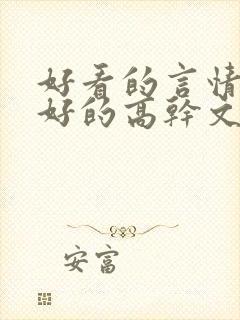 好看的言情
好的高幹文
安富